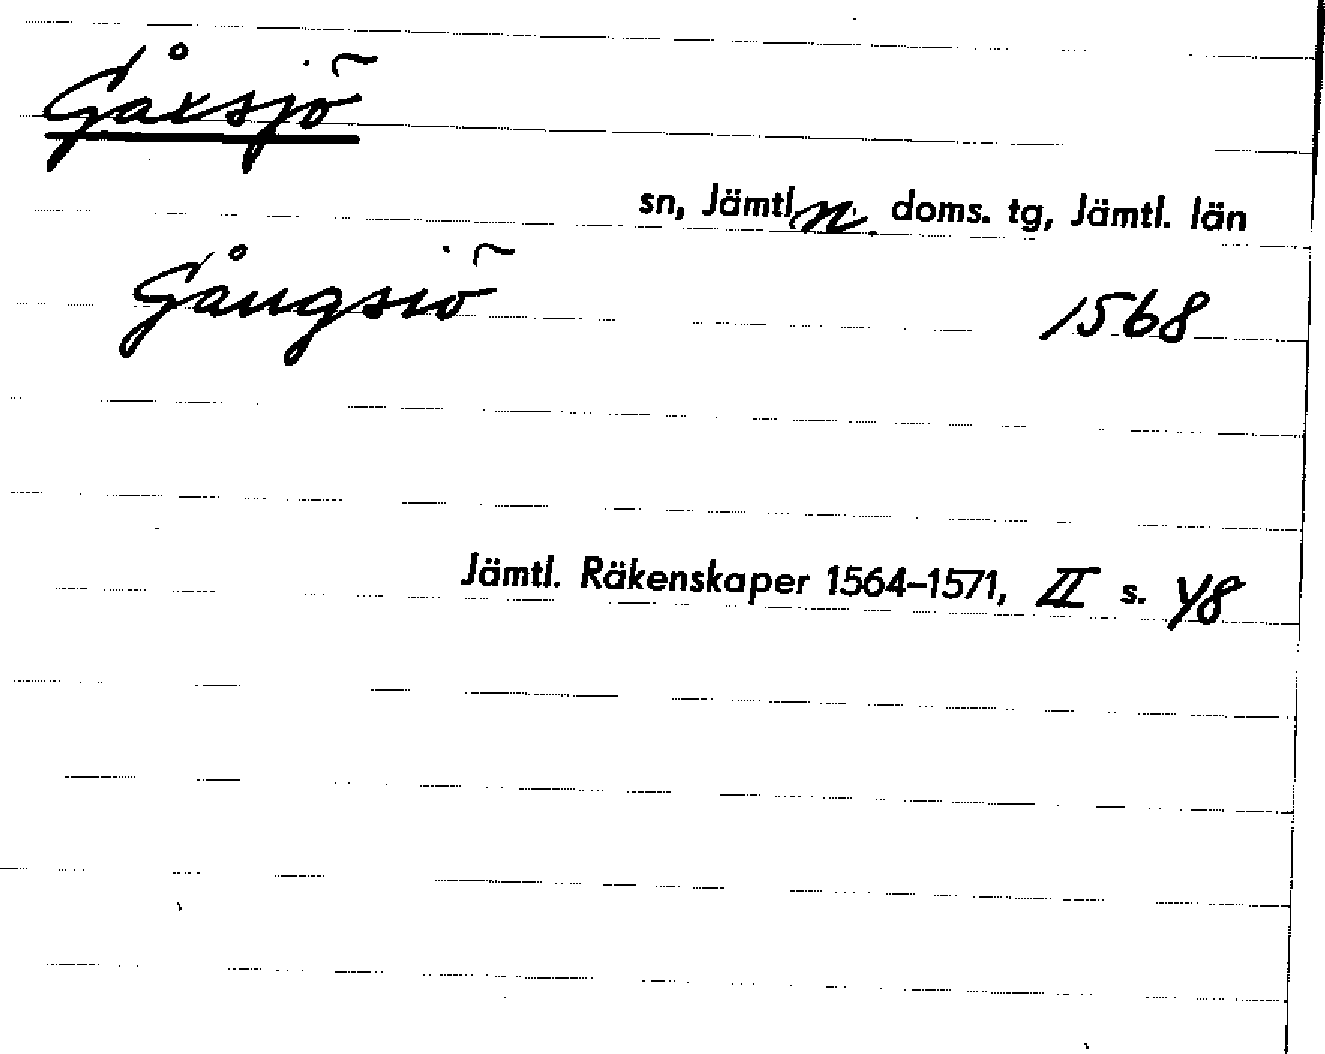 Gåxsjö
sn, Jämtl. n. doms. tg, Jämtl. län
Gångsiö 1568
Jämtl. Räkenskaper 1564–1571, II s. 48